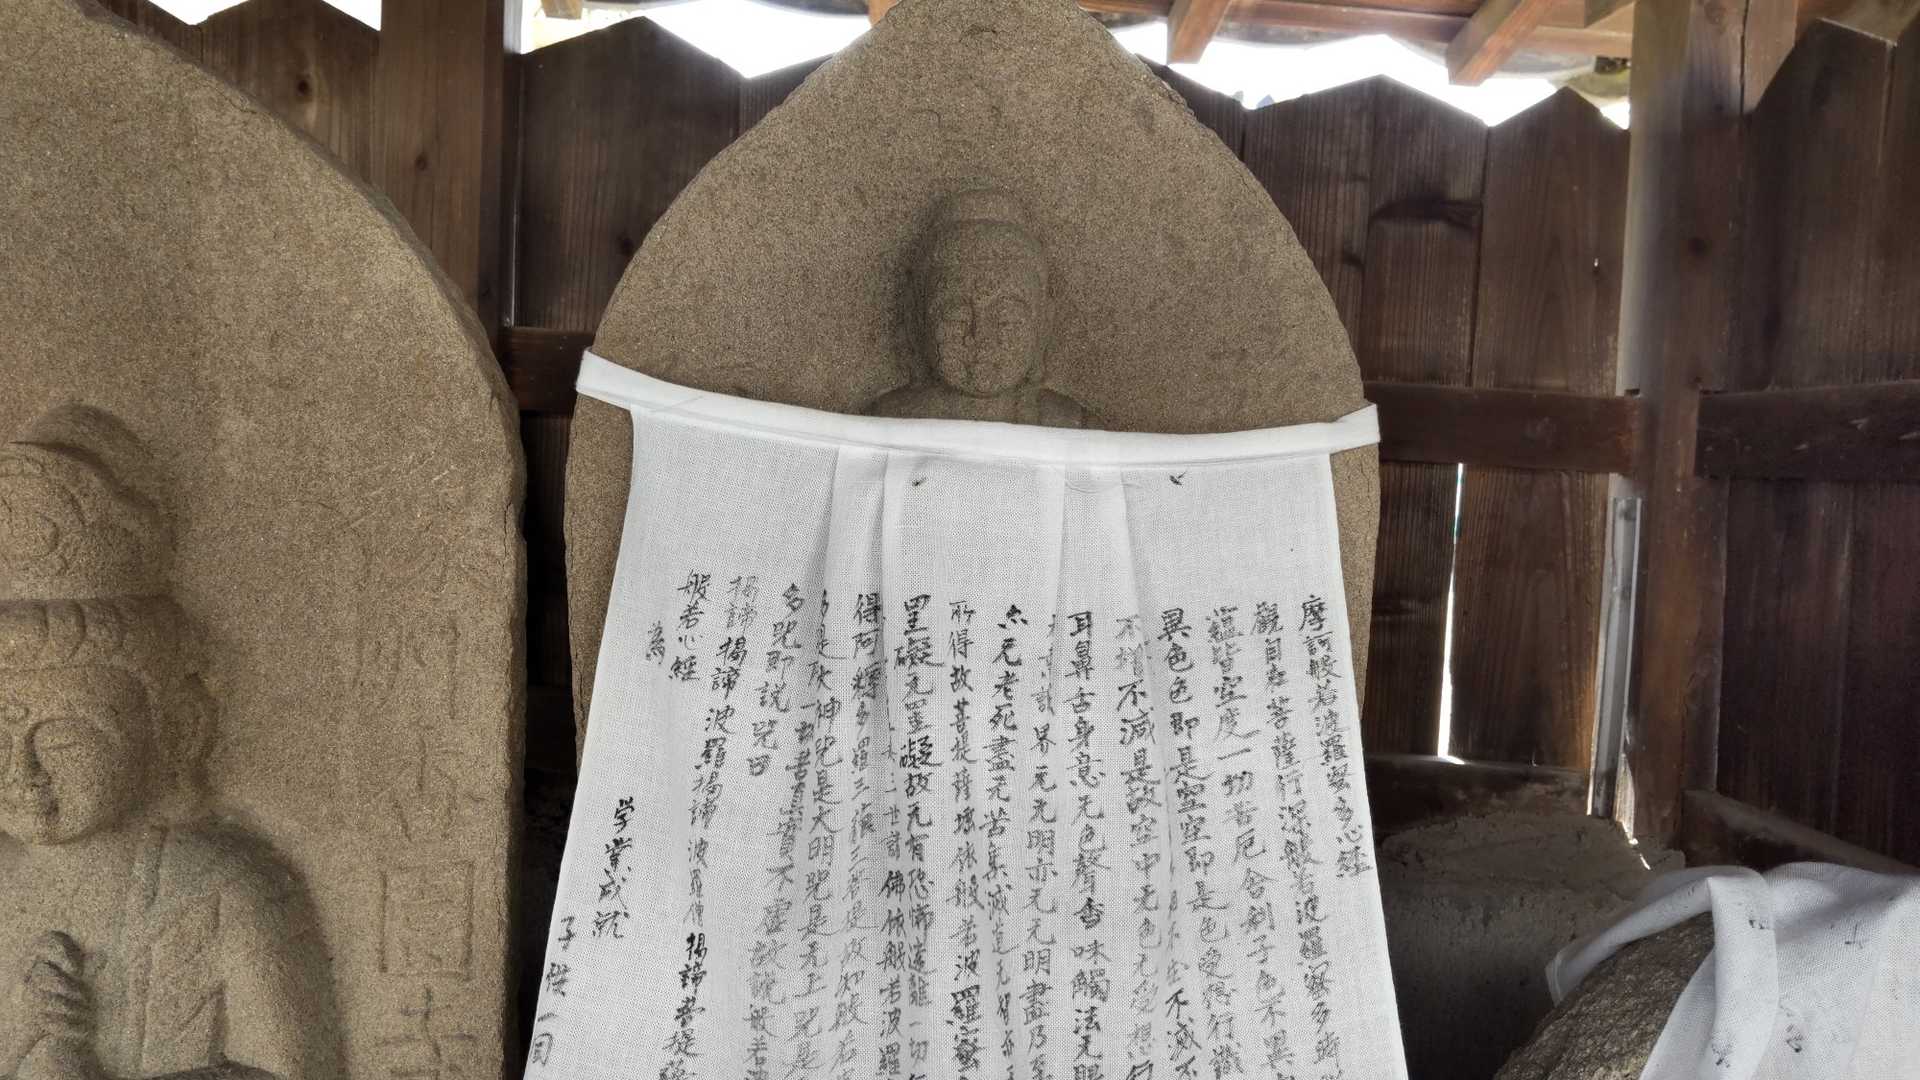 摩訶般若波羅蜜多心経
観自在菩薩行深般若波羅蜜多時
蘊皆空度一切苦厄舎利子色不異
異色色即是空空即是色受想行識
不増不減是故空中无色无受想行
不滅不
耳鼻舌身意无色聲香味觸法无眼
界无无明亦无无明盡乃至
无老死盡无苦集滅道无智亦
所得故菩提薩埵依般若波羅蜜
罣礙无罣礙故无有恐怖遠離一切
三世諸佛依般若波羅
得阿耨多羅三藐三菩提故知般若
是大神咒是大明咒是无上咒是
一切苦真實不虚故説般若波
多咒即説咒曰
揭諦揭諦波羅揭諦波羅僧揭諦菩提薩
般若心経
為
学業成就
子供一同